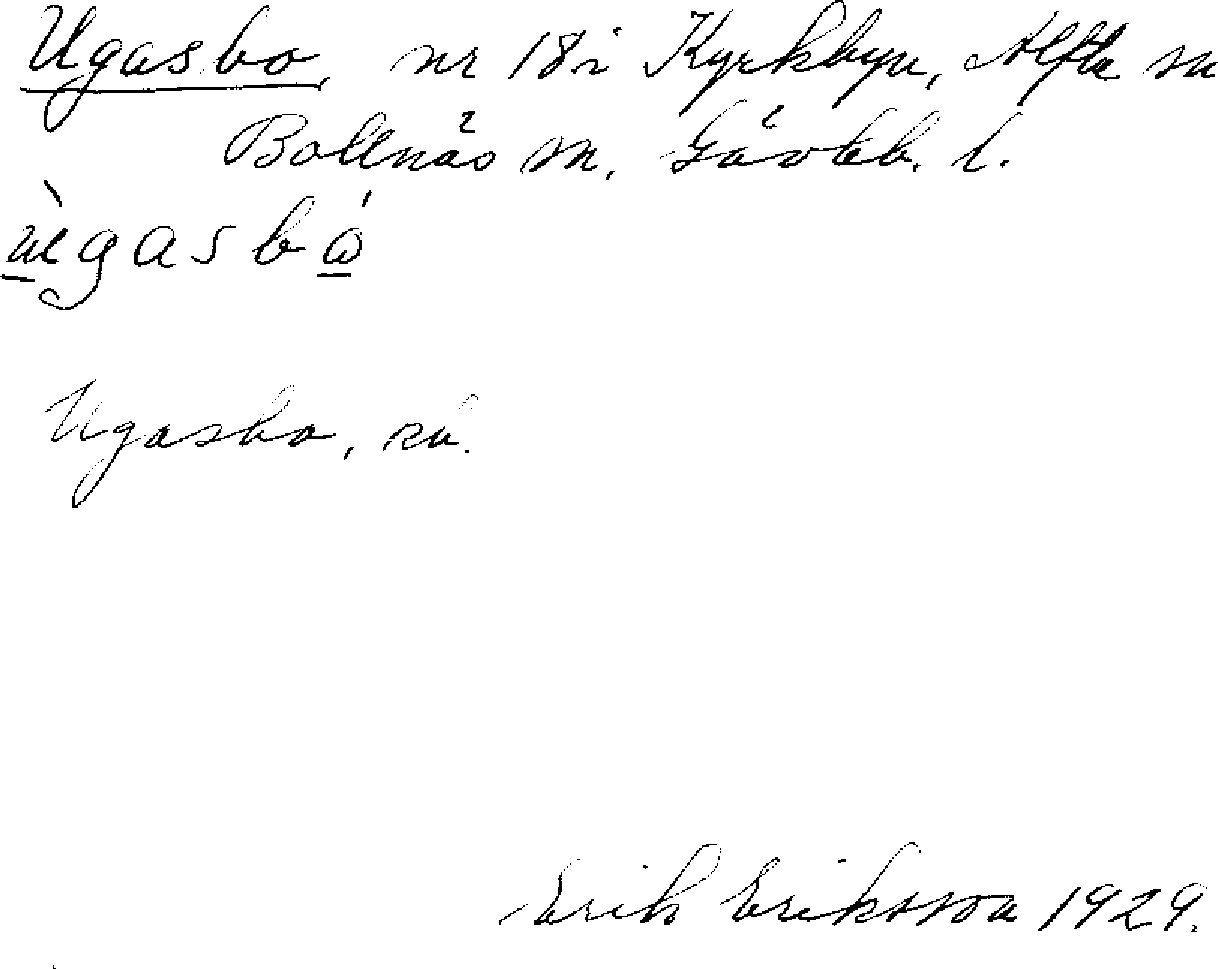 Ugasbo, nr 18 i Kyrkbyn, Alfta sn
Bollnäs sn, Gävleb. l.
ùgasbó
Ugasbo, rå.
Erik Eriksson 1929.